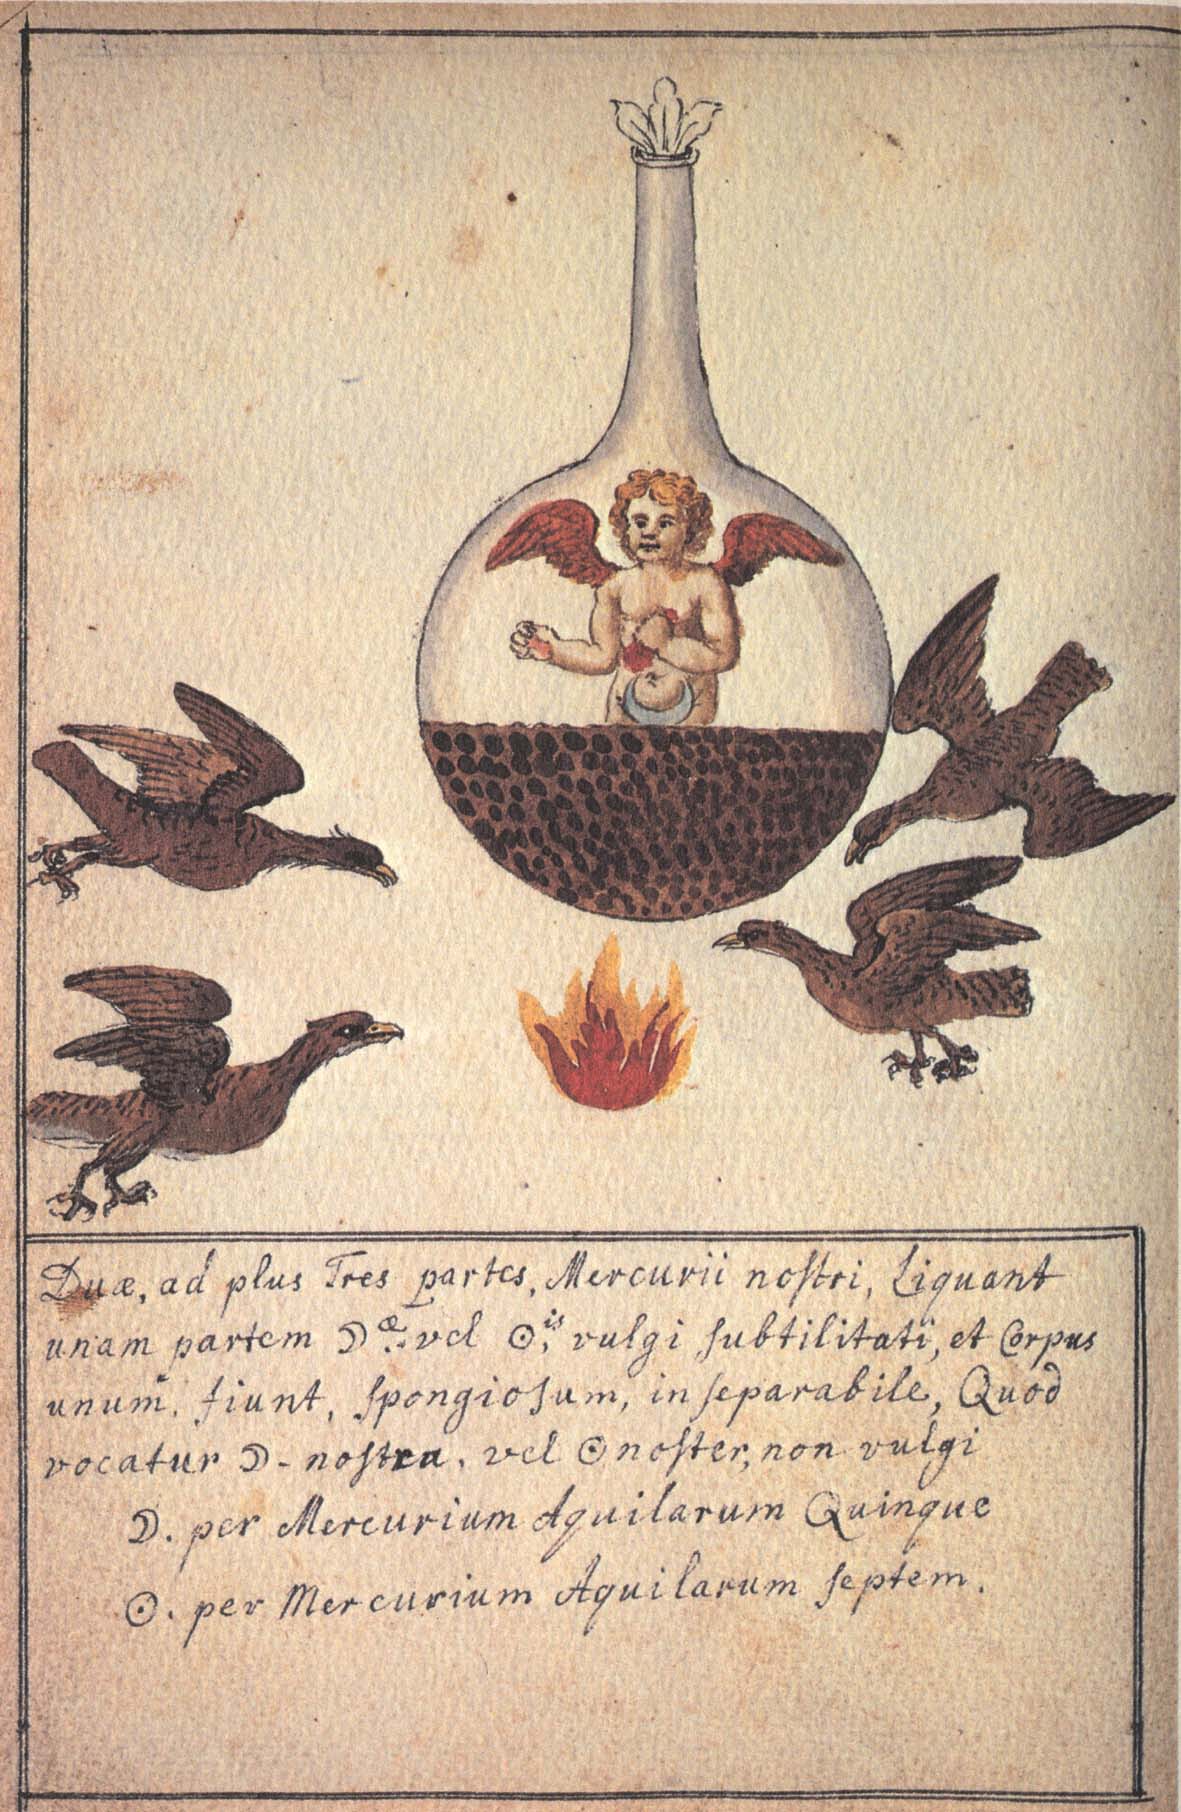 Duæ, ad plus Tres partes, Mercurii nostri, Liquant
unam partem ☽æ. vel ☉is, vulgi subtilitati, et Corpus
unum. fiunt, spongiosum, inseparabile, Quod
vocatur ☽- nostra. vel ☉ noster, non vulgi
☽. per Mercurium Aquilarum Quinque
☉. per Mercurium Aquilarum septem.